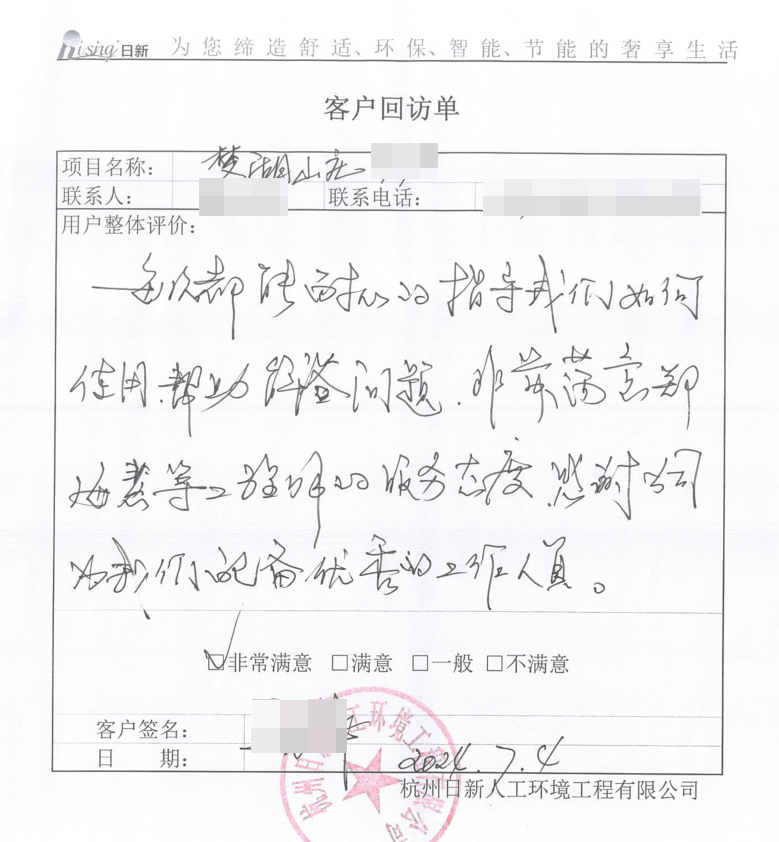 Risinqi日新 为您缔造舒适、环保、智能、节能的奢享生活
客户回访单
项目名称： 梦湖山庄
联系人： 联系电话：
用户整体评价：
每次都能耐心的指导我们如何
使用，帮助 问题，非常满意郑
海 等工程师的服务态度，感谢公司
为我们配备优秀的工作人员。
☑非常满意 □满意 □一般 □不满意
客户签名：
日 期： 2024.7.4
杭州日新人工环境工程有限公司
杭州日 工环境工程有限公司